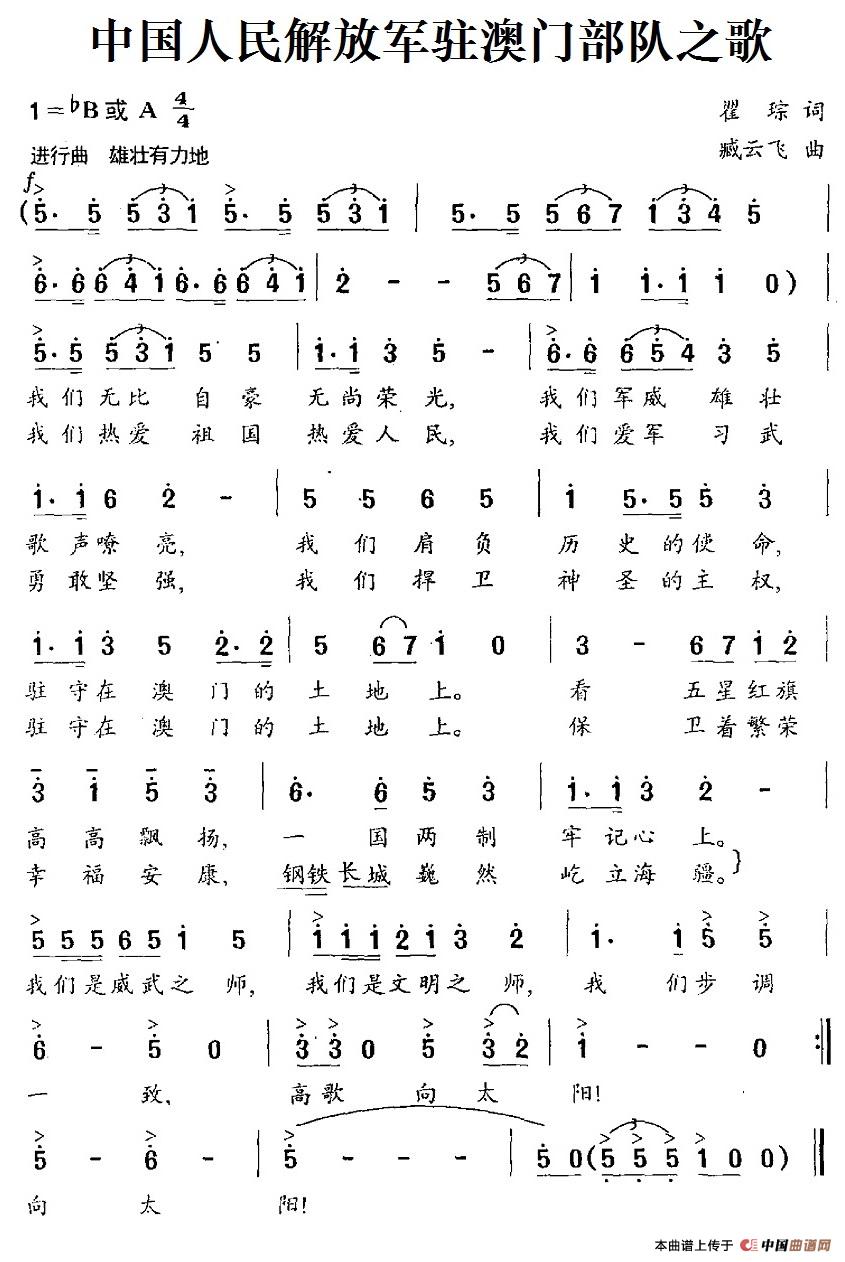 中国人民解放军驻澳门部队之歌
1=♭B或 A 4/4
瞿 琮 词
进行曲 雄壮有力地
臧云飞 曲
f
(5. 5 5 3 1 5. 5 5 3 1 | 5. 5 5 6 7 1 3 4 5 |
6. 6 6 4 1 6. 6 6 4 1 | 2 - - 5 6 7 | 1 1. 1 1 0) |
5. 5 5 3 1 5 5 | 1. 1 3 5 - | 6. 6 6 5 4 3 5 |
我们无比 自豪 无尚荣光, 我们军威 雄壮
我们热爱 祖国 热爱人民, 我们爱军 习武
1. 1 6 2 - | 5 5 6 5 | 1 5. 5 5 3 |
歌声嘹亮, 我们肩负 历史的使命,
勇敢坚强, 我们捍卫 神圣的主权,
1. 1 3 5 2. 2 | 5 6 7 1 0 | 3 - 6 7 1 2 |
驻守在澳门的 土地上。 看 五星红旗
驻守在澳门的 土地上。 保 卫着繁荣
3 1 5 3 | 6. 6 5 3 | 1. 1 3 2 - |
高高飘扬, 一国两制 牢记心上。
幸福安康, 钢铁长城巍然 屹立海疆。}
5 5 5 6 5 1 5 | 1 1 1 2 1 3 2 | 1. 1 5 5 |
我们是威武之师, 我们是文明之师, 我们步调
6 - 5 0 | 3 3 0 5 3 2 | 1 - - 0 :||
一 致, 高歌 向太 阳!
5 - 6 - | 5 - - - | 5 0 (5 5 5 1 0 0) ||
向 太 阳!
本曲谱上传于 中国曲谱网